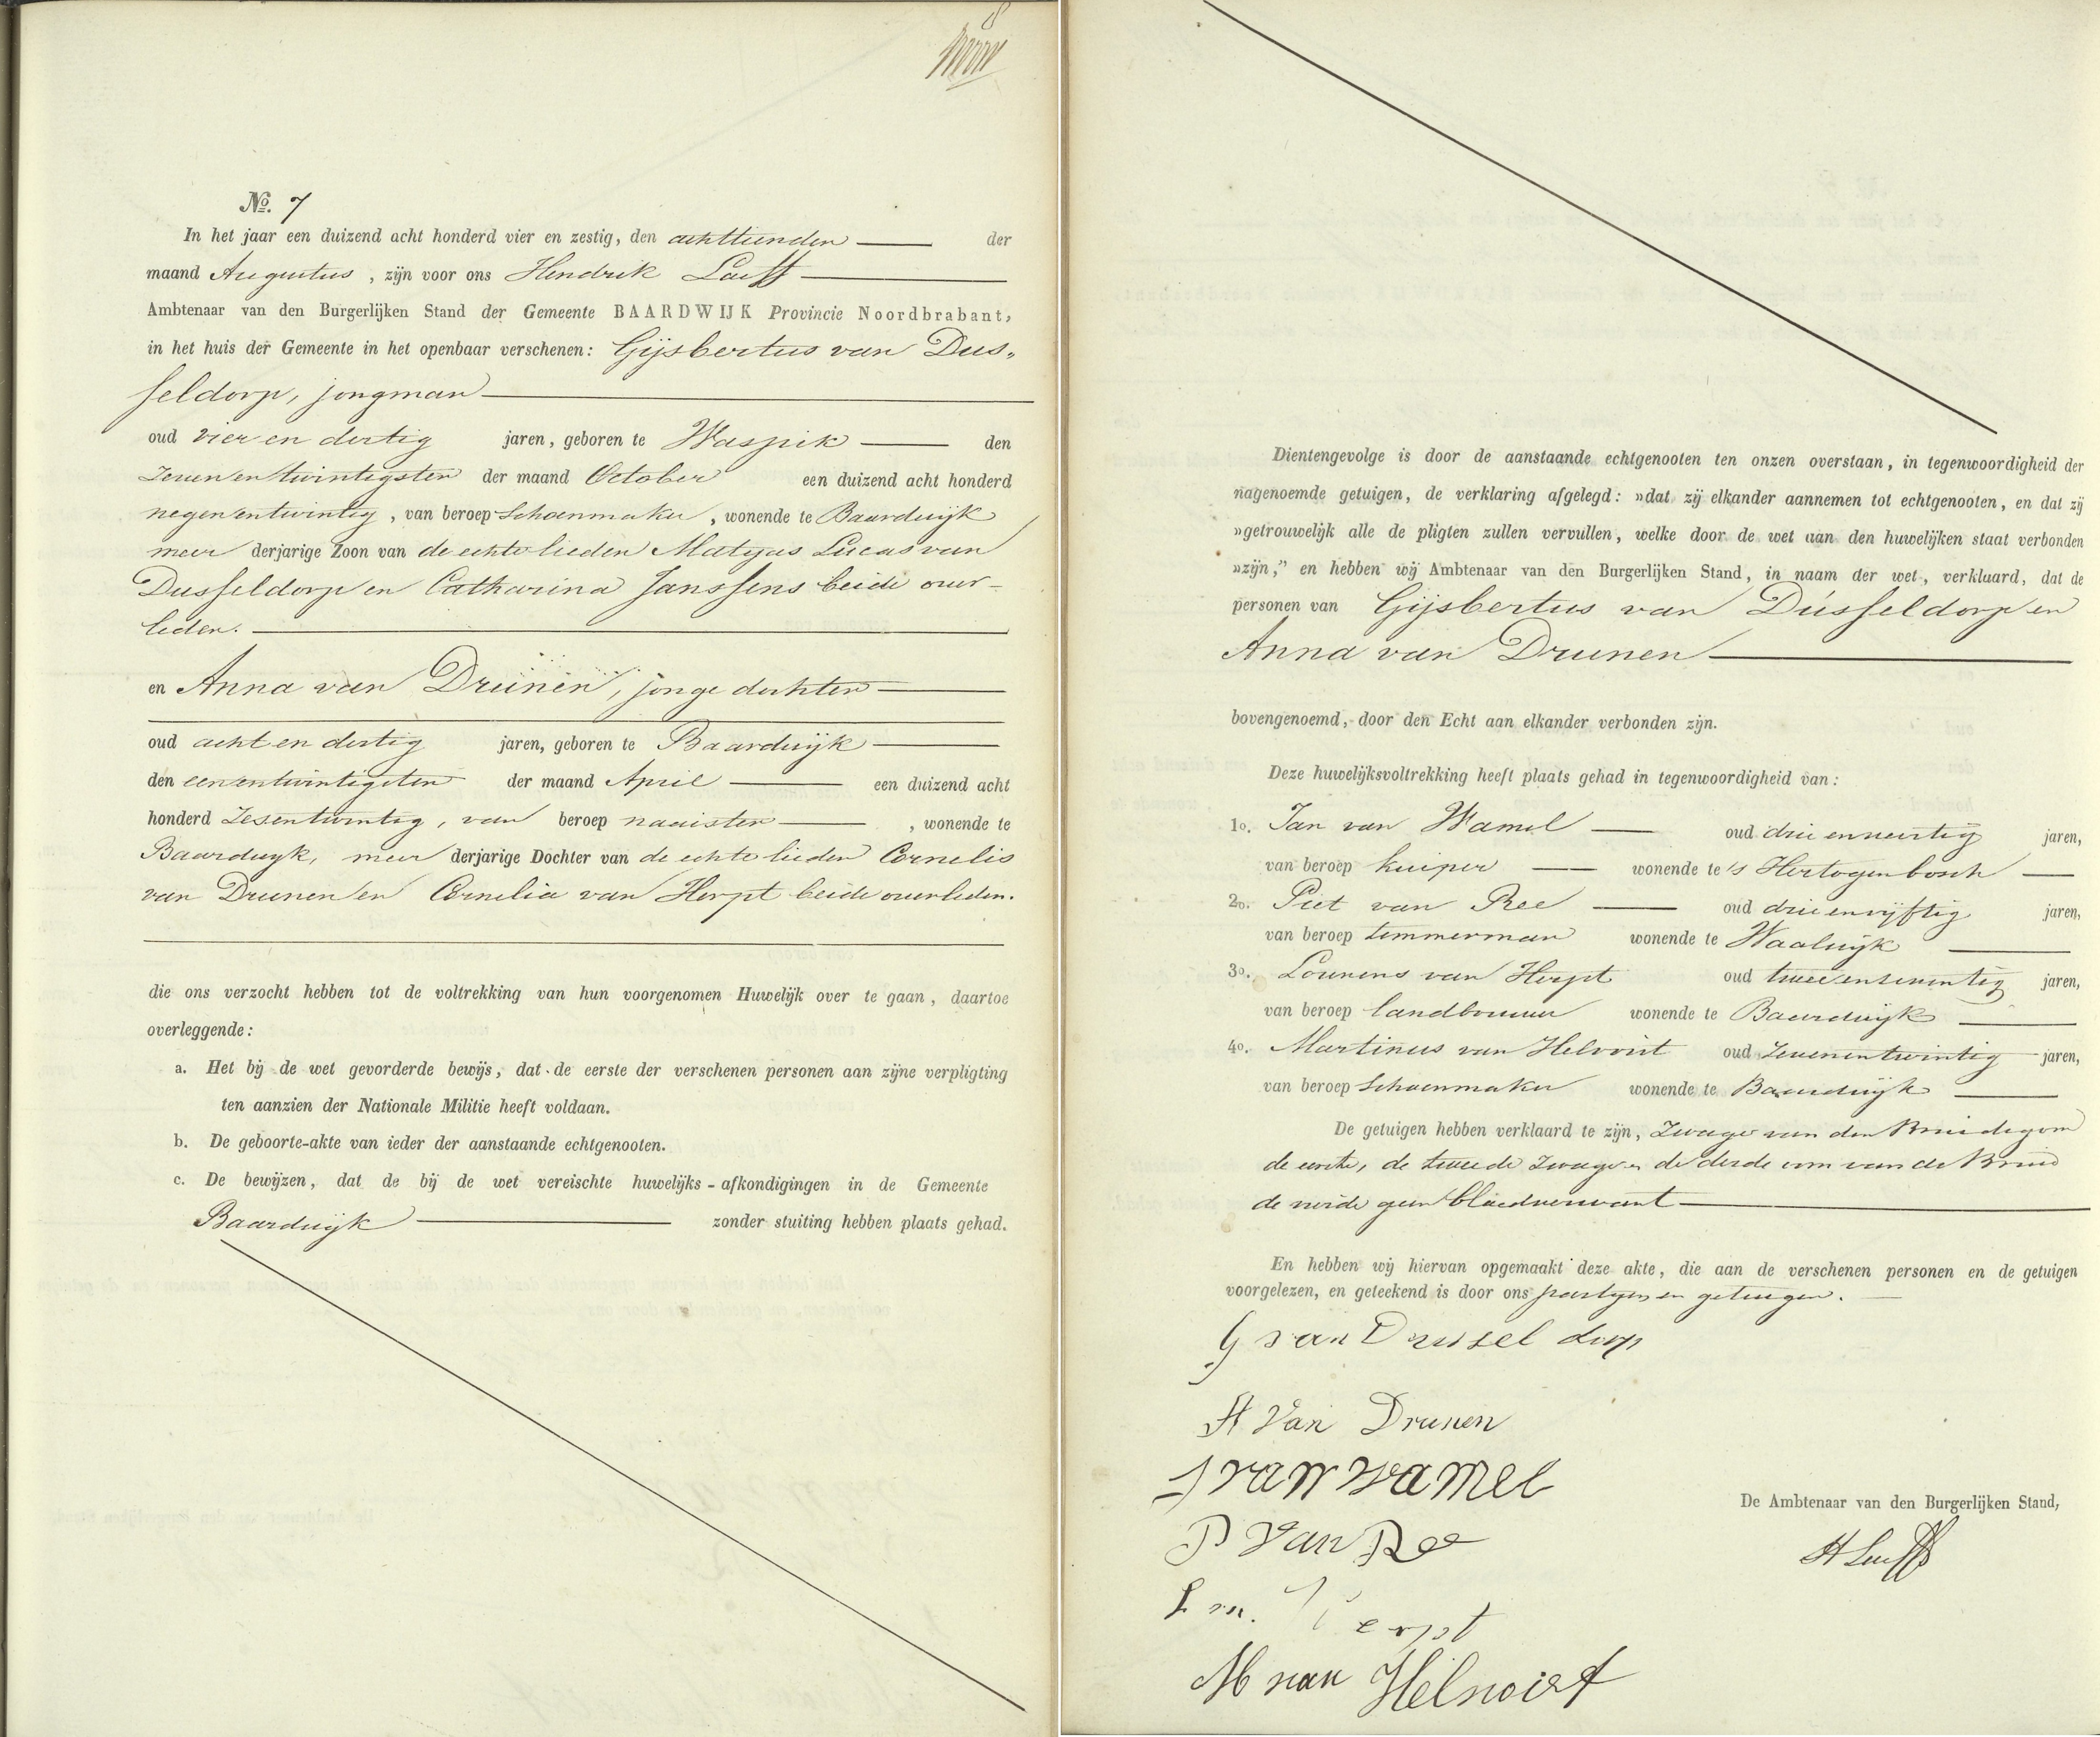 8
No. 7
In het jaar een duizend acht honderd vier en zestig, den achttienden der
maand Augustus, zijn voor ons Hendrik Luijff
Ambtenaar van den Burgerlijken Stand der Gemeente BAARDWIJK Provincie Noordbrabant,
in het huis der Gemeente in het openbaar verschenen: Gijsbertus van Dus„
seldorp, jongman
oud vier en dertig jaren, geboren te Waspik den
Zevenentwintigsten der maand October een duizend acht honderd
negenentwintig, van beroep Schoenmaker, wonende te Baardwijk
meer derjarige Zoon van de echtelieden Matyas Lucas van
Dusseldorp en Catharina Janssens beide over-
leden.
en Anna van Drunen, jonge dochter
oud acht en dertig jaren, geboren te Baardwijk
den eenentwintigsten der maand April een duizend acht
honderd Zesentwintig, van beroep naaister, wonende te
Baardwyk, meer derjarige Dochter van de echtelieden Cornelis
van Drunen en Cornelia van Herpt beide overleden.
die ons verzocht hebben tot de voltrekking van hun voorgenomen Huwelijk over te gaan, daartoe
overleggende:
a. Het bij de wet gevorderde bewijs, dat de eerste der verschenen personen aan zijne verpligting
ten aanzien der Nationale Militie heeft voldaan.
b. De geboorte-akte van ieder der aanstaande echtgenooten.
c. De bewijzen, dat de bij de wet vereischte huwelijks-afkondigingen in de Gemeente
Baardwijk zonder stuiting hebben plaats gehad.
Dientengevolge is door de aanstaande echtgenooten ten onzen overstaan, in tegenwoordigheid der
nagenoemde getuigen, de verklaring afgelegd: »dat zij elkander aannemen tot echtgenooten, en dat zij
»getrouwelijk alle de pligten zullen vervullen, welke door de wet aan den huwelijken staat verbonden
»zijn,” en hebben wij Ambtenaar van den Burgerlijken Stand, in naam der wet, verklaard, dat de
personen van Gijsbertus van Dusseldorp en
Anna van Drunen
bovengenoemd, door den Echt aan elkander verbonden zijn.
Deze huwelijksvoltrekking heeft plaats gehad in tegenwoordigheid van:
1o. Jan van Wamel oud drie en veertig jaren,
van beroep kuiper wonende te 's Hertogenbosch
2o. Piet van Ree oud drie en vijftig jaren,
van beroep timmerman wonende te Waalwijk
3o. Lourens van Herpt oud twee en seventig jaren,
van beroep landbouwer wonende te Baardwijk
4o. Martinus van Helvoirt oud Zevenentwintig jaren,
van beroep Schoenmaker wonende te Baardwijk
De getuigen hebben verklaard te zijn, Zwager van den Bruidegom
de eerste, de tweede Zwager de derde oom van de Bruid
de vierde geen bloedverwant
En hebben wij hiervan opgemaakt deze akte, die aan de verschenen personen en de getuigen
voorgelezen, en geteekend is door ons partyen en getuigen.
G van Dussel dorp
A Van Drunen
J van Wamel
P Van Ree
De Ambtenaar van den Burgerlijken Stand,
H Luijff
L v. Herpt
M van Helvoirt